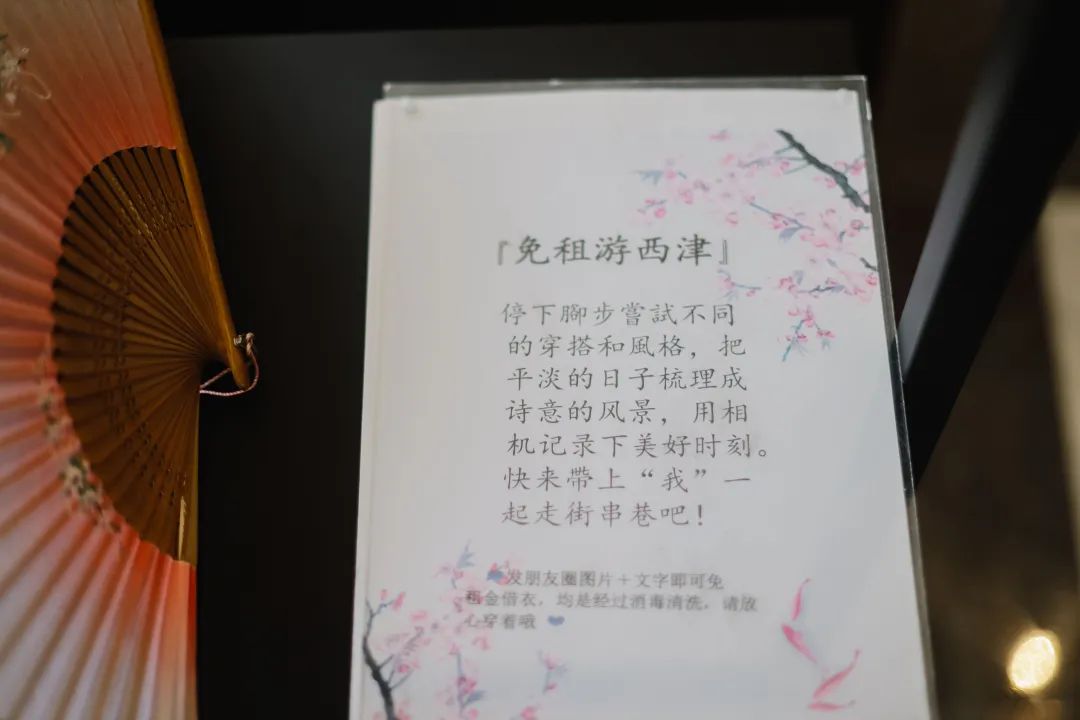 『免租游西津』
停下腳步嘗試不同
的穿搭和風格，把
平淡的日子梳理成
诗意的风景，用相
机记录下美好时刻。
快来帶上“我”一
起走街串巷吧！
发朋友圈图片＋文字即可免
租金借衣，均是经过消毒清洗，请放
心穿着哦